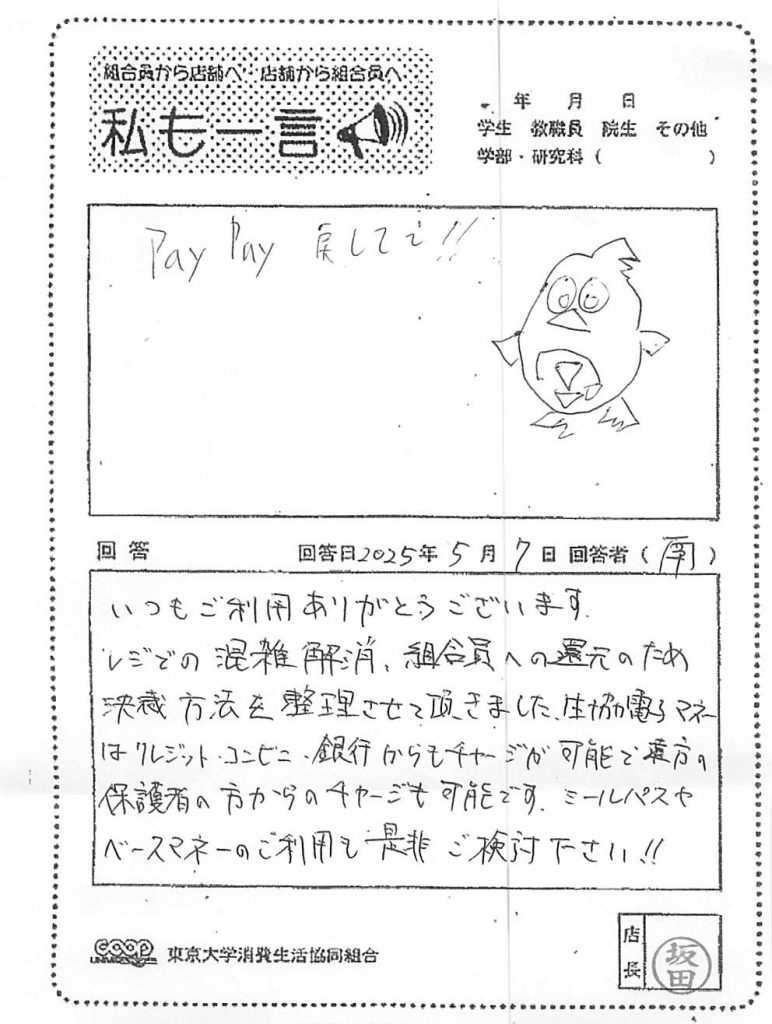 組合員から店舗へ 店舗から組合員へ
私も一言
年 月 日
学生 教職員 院生 その他
学部・研究科( )
PayPay 戻して!!
回答 回答日2025年5月7日 回答者(南)
いつもご利用ありがとうございます.
レジでの混雑解消、組合員への還元のため
決裁方法を整理させて頂きました.生協電子マネー
はクレジット・コンビニ・銀行からもチャージが可能で遠方の
保護者の方からのチャージも可能です.ミールパスや
ベースマネーのご利用も是非ご検討下さい!!
coop
東京大学消費生活協同組合
店長
坂田